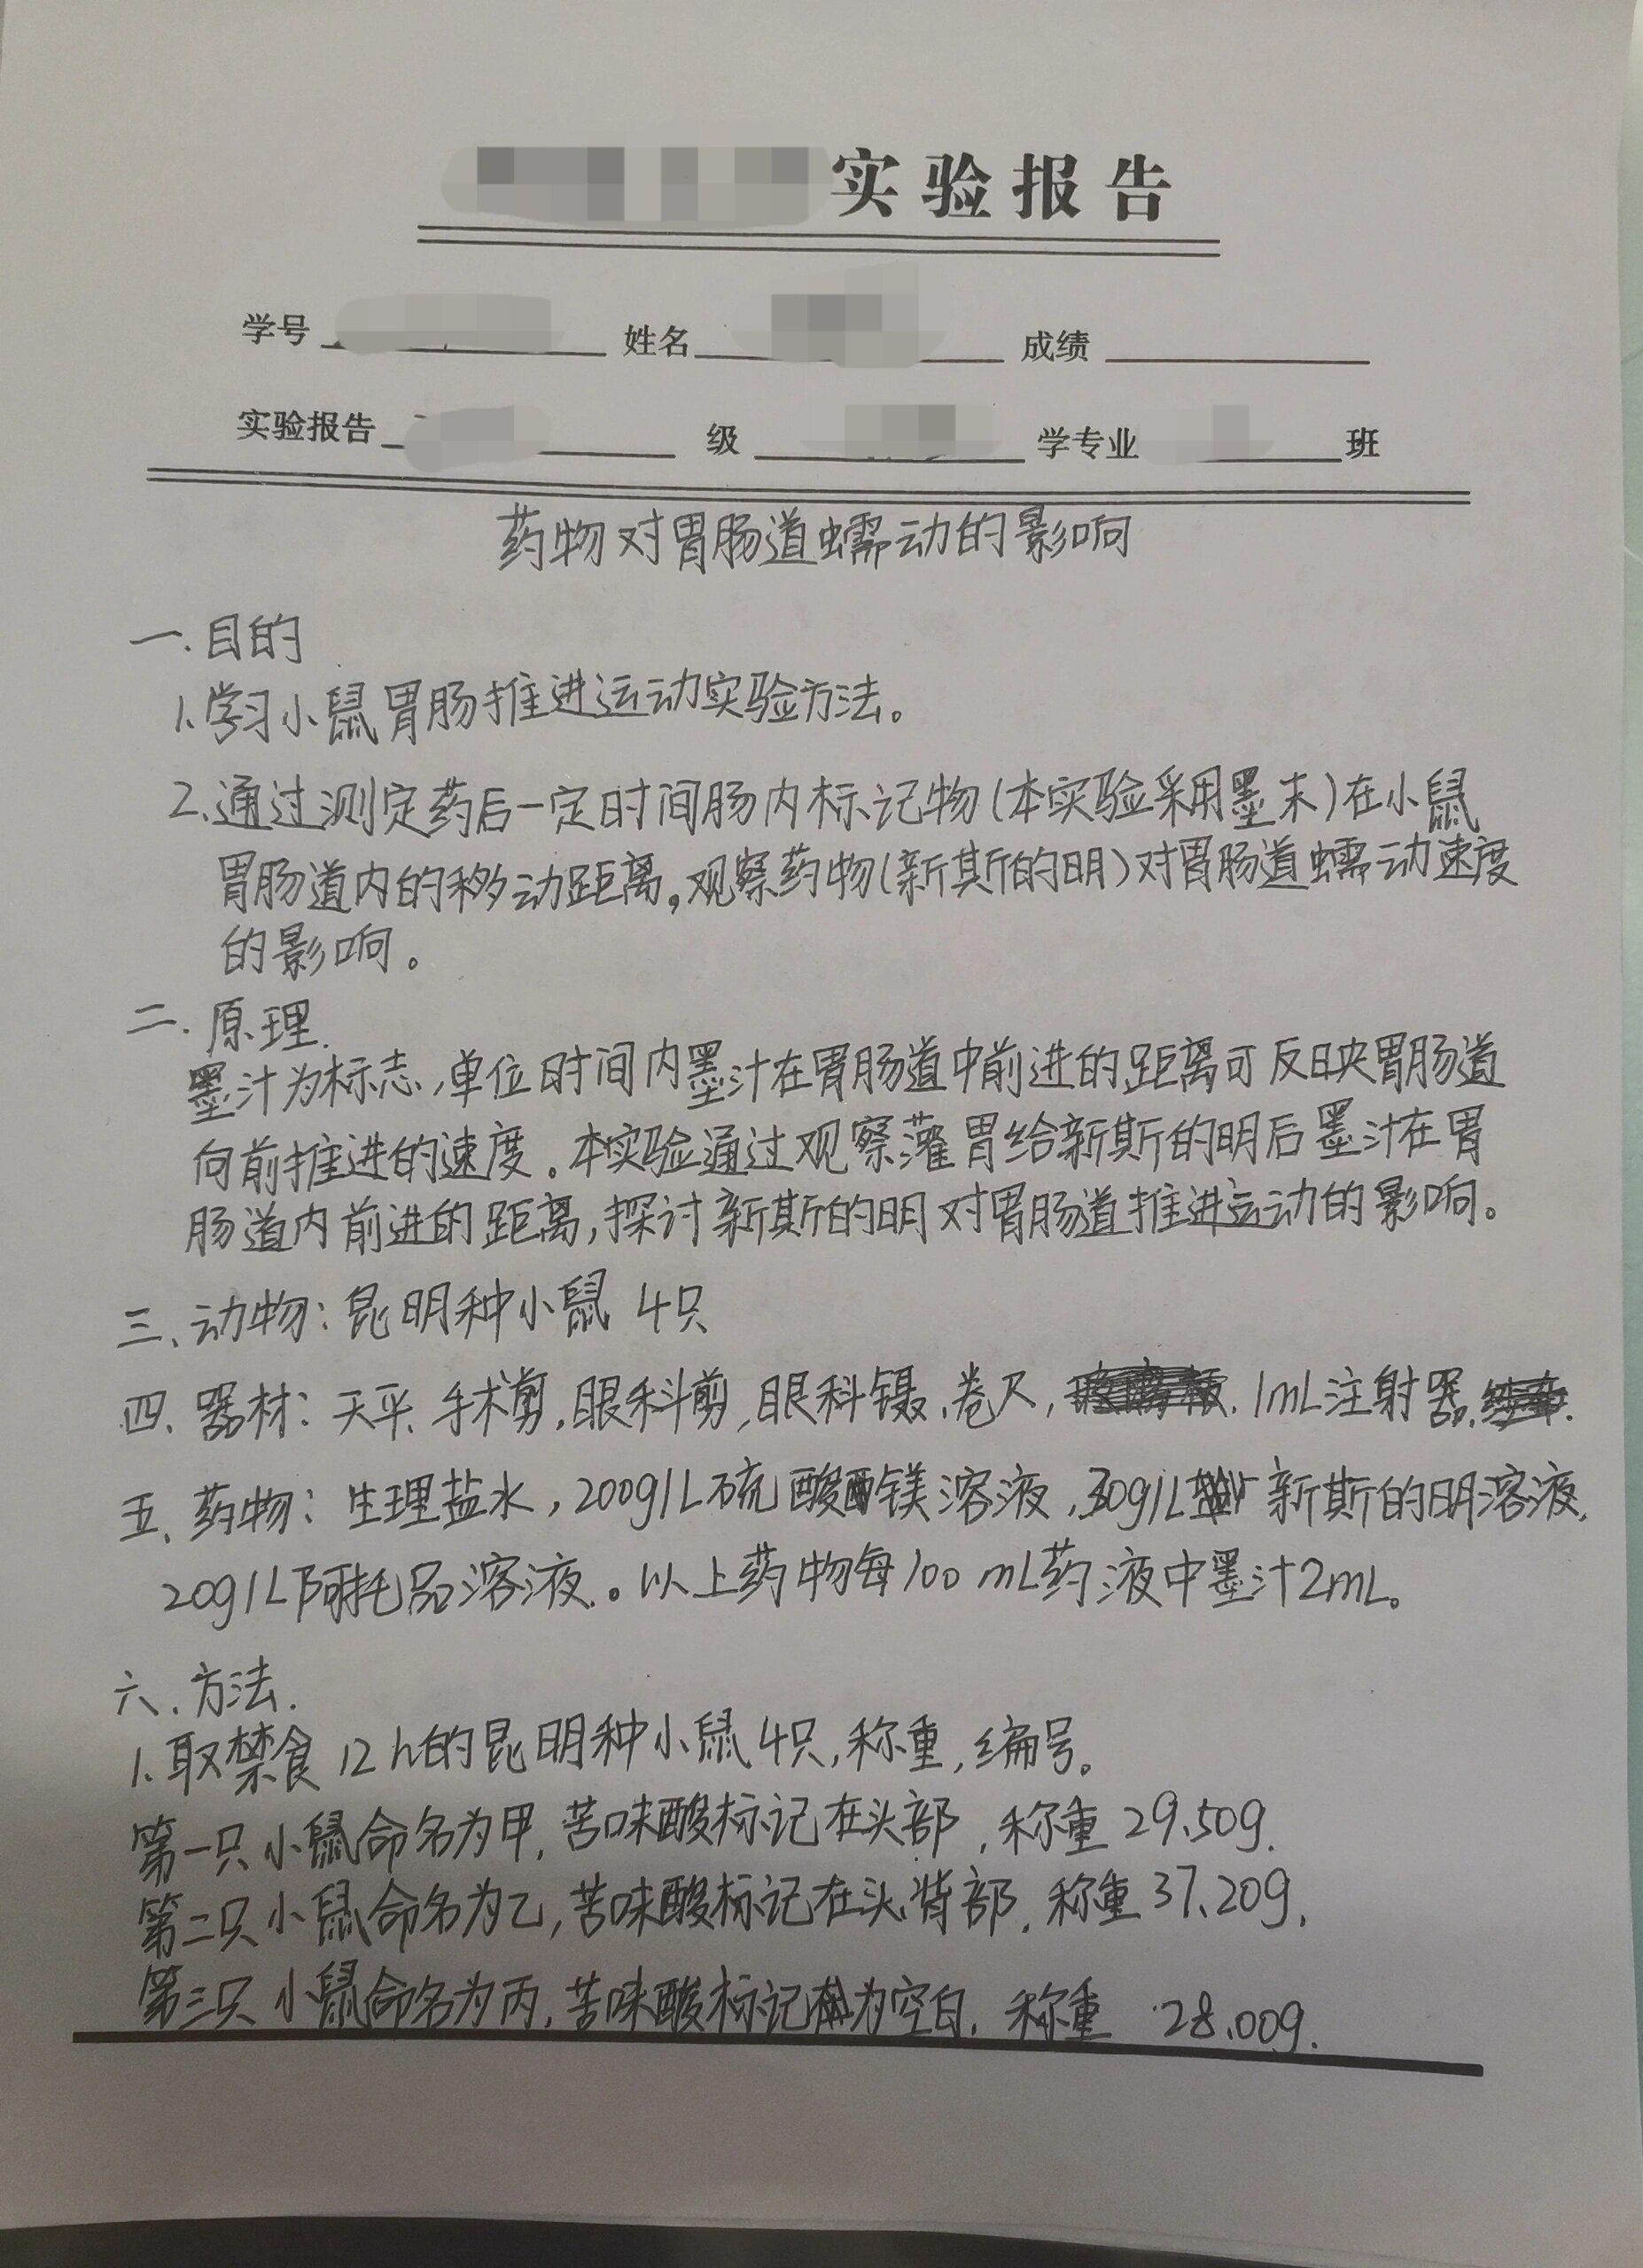 实验报告
学号 姓名 成绩
实验报告 级 学专业 班
药物对胃肠道蠕动的影响
一.目的
1.学习小鼠胃肠推进运动实验方法。
2.通过测定药后一定时间肠内标记物(本实验采用墨末)在小鼠
胃肠道内的移动距离,观察药物(新斯的明)对胃肠道蠕动速度
的影响。
二.原理.
墨汁为标志,单位时间内墨汁在胃肠道中前进的距离可反映胃肠道
向前推进的速度.本实验通过观察灌胃给新斯的明后墨汁在胃
肠道内前进的距离,探讨新斯的明对胃肠道推进运动的影响。
三、动物:昆明种小鼠 4只
四、器材:天平、手术剪,眼科剪,眼科镊、卷尺, 1mL注射器,
五、药物:生理盐水,200g/L硫酸镁溶液,30g/L 新斯的明溶液,
20g/L阿托品溶液.。以上药物每100mL药液中墨汁2mL。
六.方法.
1.取禁食12h的昆明种小鼠4只,称重,编号。
第一只小鼠命名为甲,苦味酸标记在头部,称重29.50g.
第二只小鼠命名为乙,苦味酸标记在头背部,称重37.20g,
第三只小鼠命名为丙,苦味酸标记为空白,称重 28.00g.